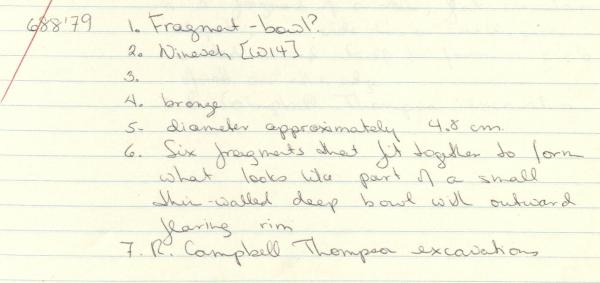 688'79 1. Fragment - bowl?
2. Nineveh [W14]
3.
4. bronze
5. diameter approximately 4.8 cm.
6. Six fragments that fit together to form
what looks like part of a small
thin-walled deep bowl with outward
flaring rim
7. R. Campbell Thompson excavations